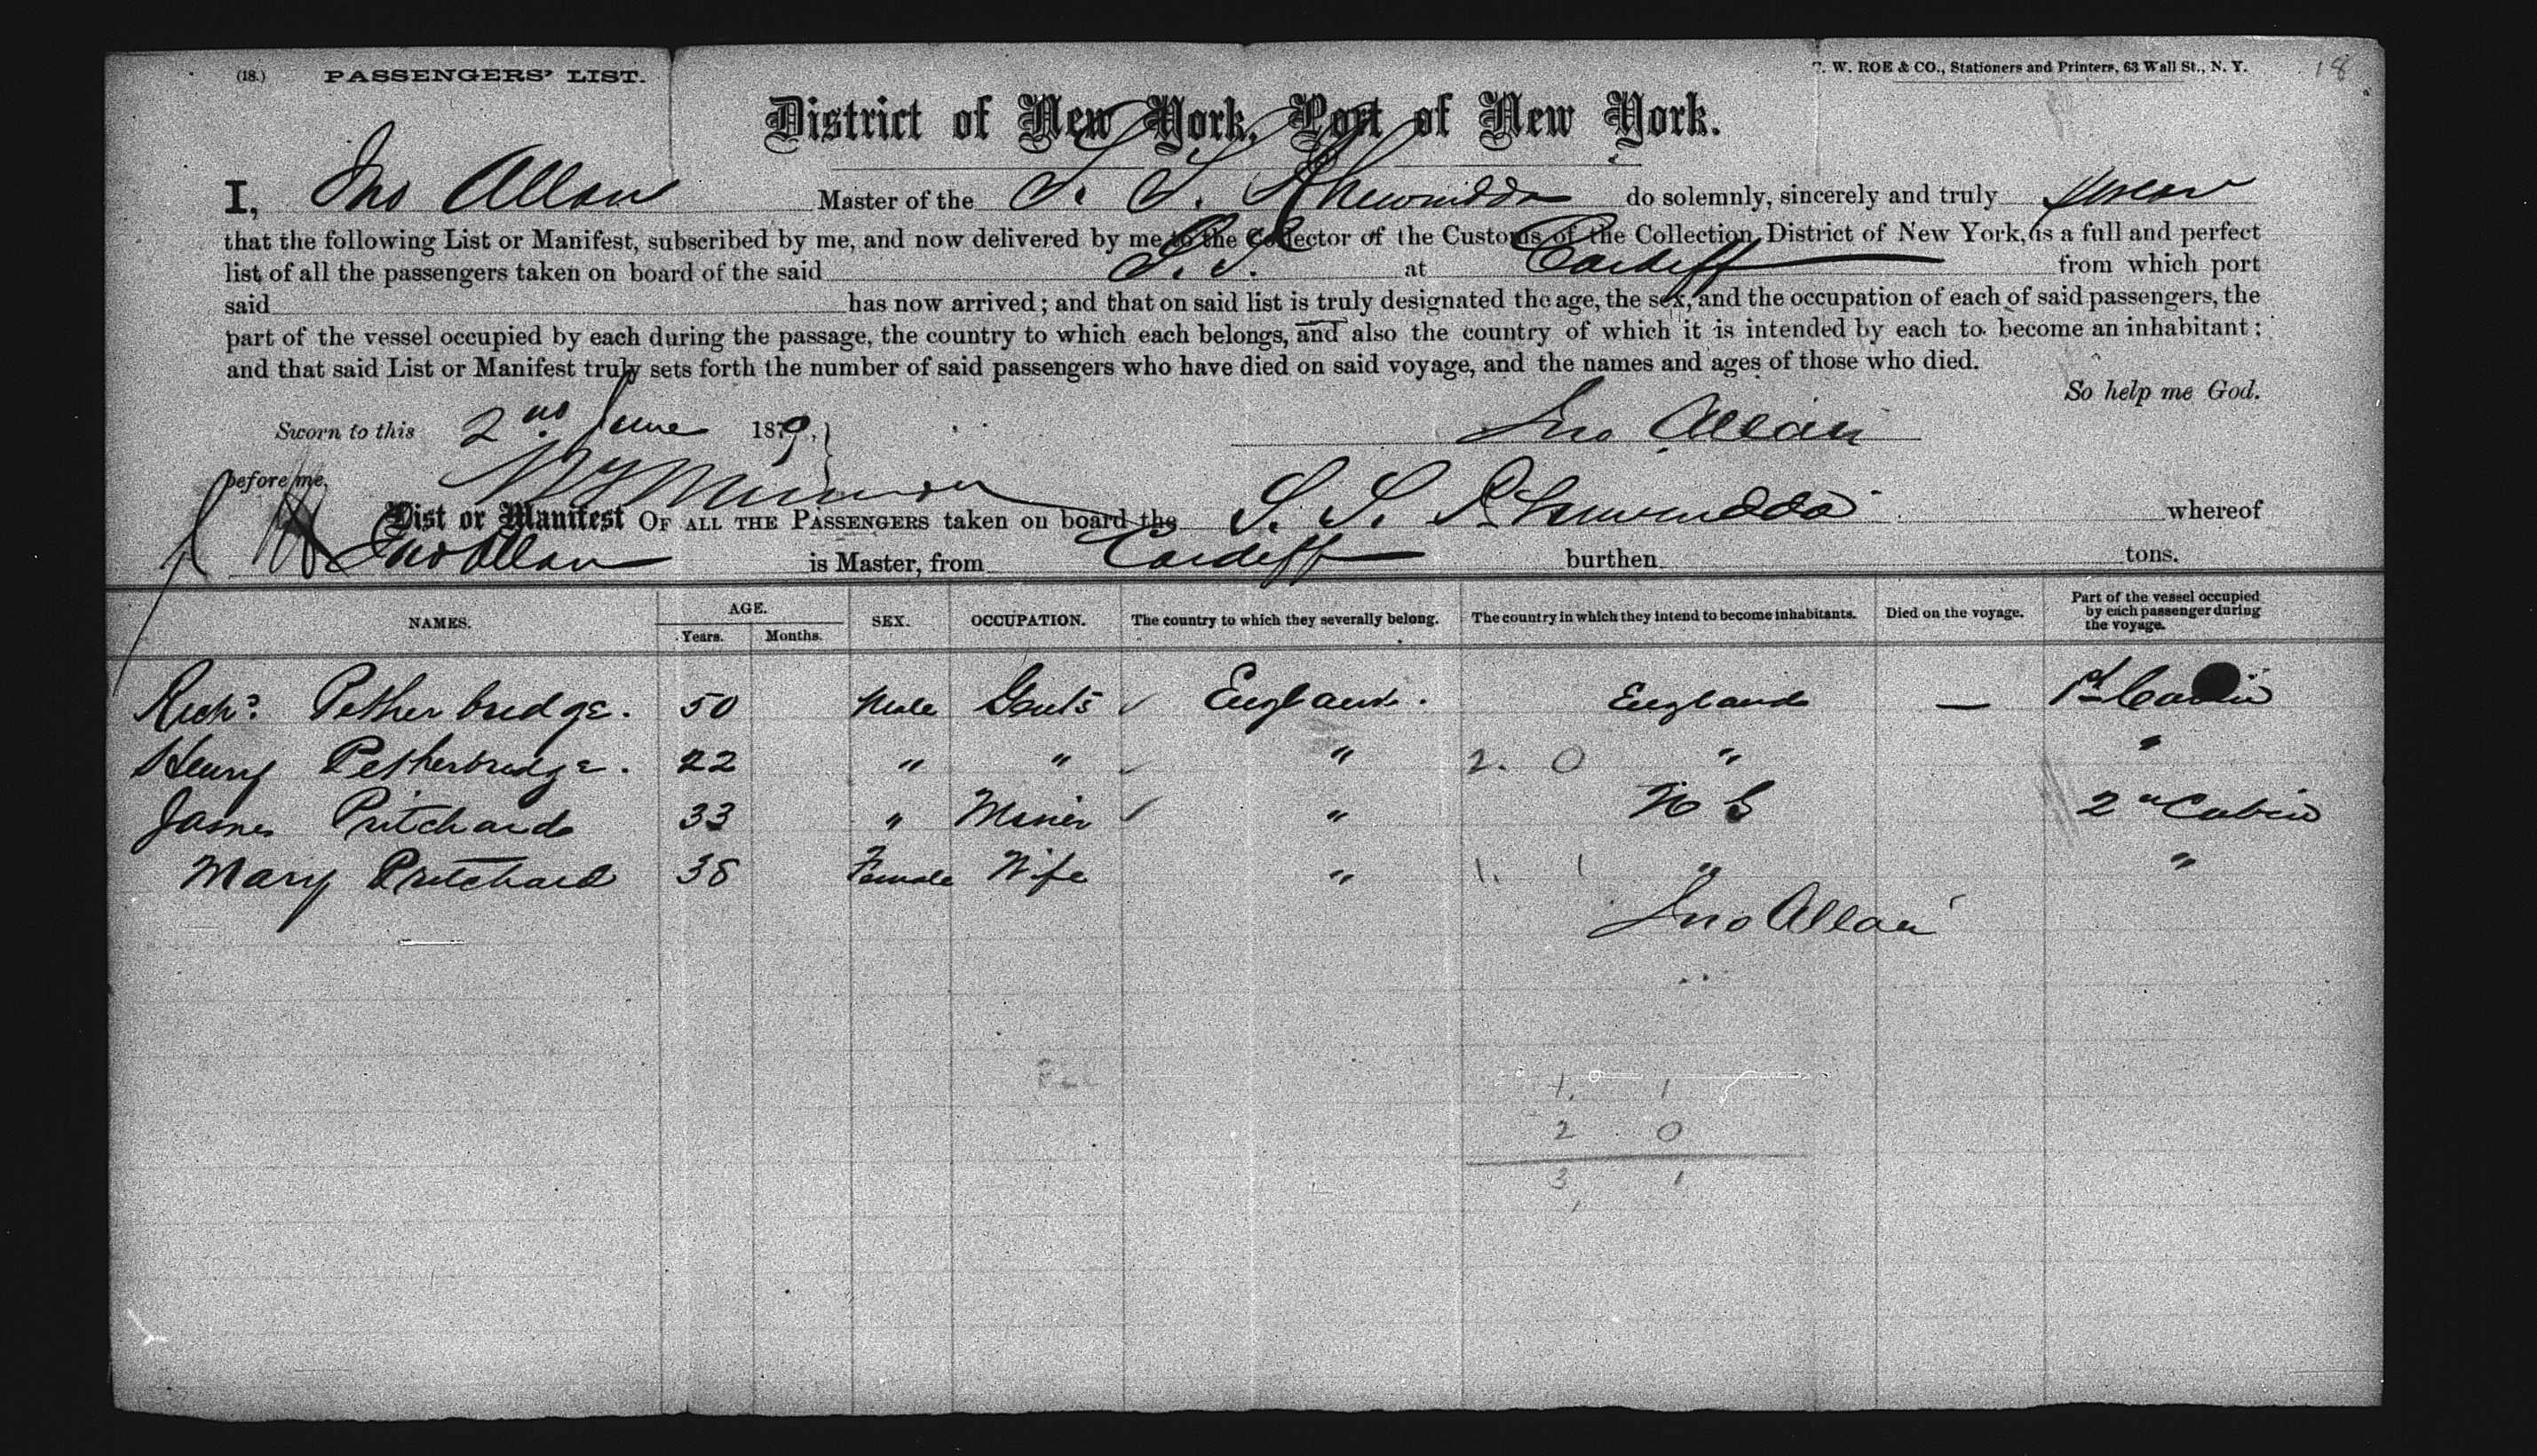 (18.) PASSENGERS' LIST.
T. W. ROE & CO., Stationers and Printers, 63 Wall St., N. Y. 18
District of New York, Port of New York.
I, Jno Allan Master of the S. S. Rhiwindda do solemnly, sincerely and truly swear
that the following List or Manifest, subscribed by me, and now delivered by me to the Collector of the Customs of the Collection District of New York, is a full and perfect
list of all the passengers taken on board of the said S. S. at Cardiff from which port
said has now arrived; and that on said list is truly designated the age, the sex, and the occupation of each of said passengers, the
part of the vessel occupied by each during the passage, the country to which each belongs, and also the country of which it is intended by each to become an inhabitant;
and that said List or Manifest truly sets forth the number of said passengers who have died on said voyage, and the names and ages of those who died.
So help me God.
Sworn to this 2nd June 1879, Jno Allan
before me,
List or Manifest OF ALL THE PASSENGERS taken on board the S. S. Rhiwindda whereof
Jno Allan is Master, from Cardiff burthen tons.
NAMES. AGE. Years. Months. SEX. OCCUPATION. The country to which they severally belong. The country in which they intend to become inhabitants. Died on the voyage. Part of the vessel occupied by each passenger during the voyage.
Richd. Petherbridge. 50 Male Gents England. England — 1st Cabin
Henry Petherbridge. 22 " " " 2. 0 " "
James Pritchard 33 " Miner " 2nd Cabin
Mary Pritchard 38 Female Wife " 1. 1 " "
Jno Allan
1. 1
2 0
3 1